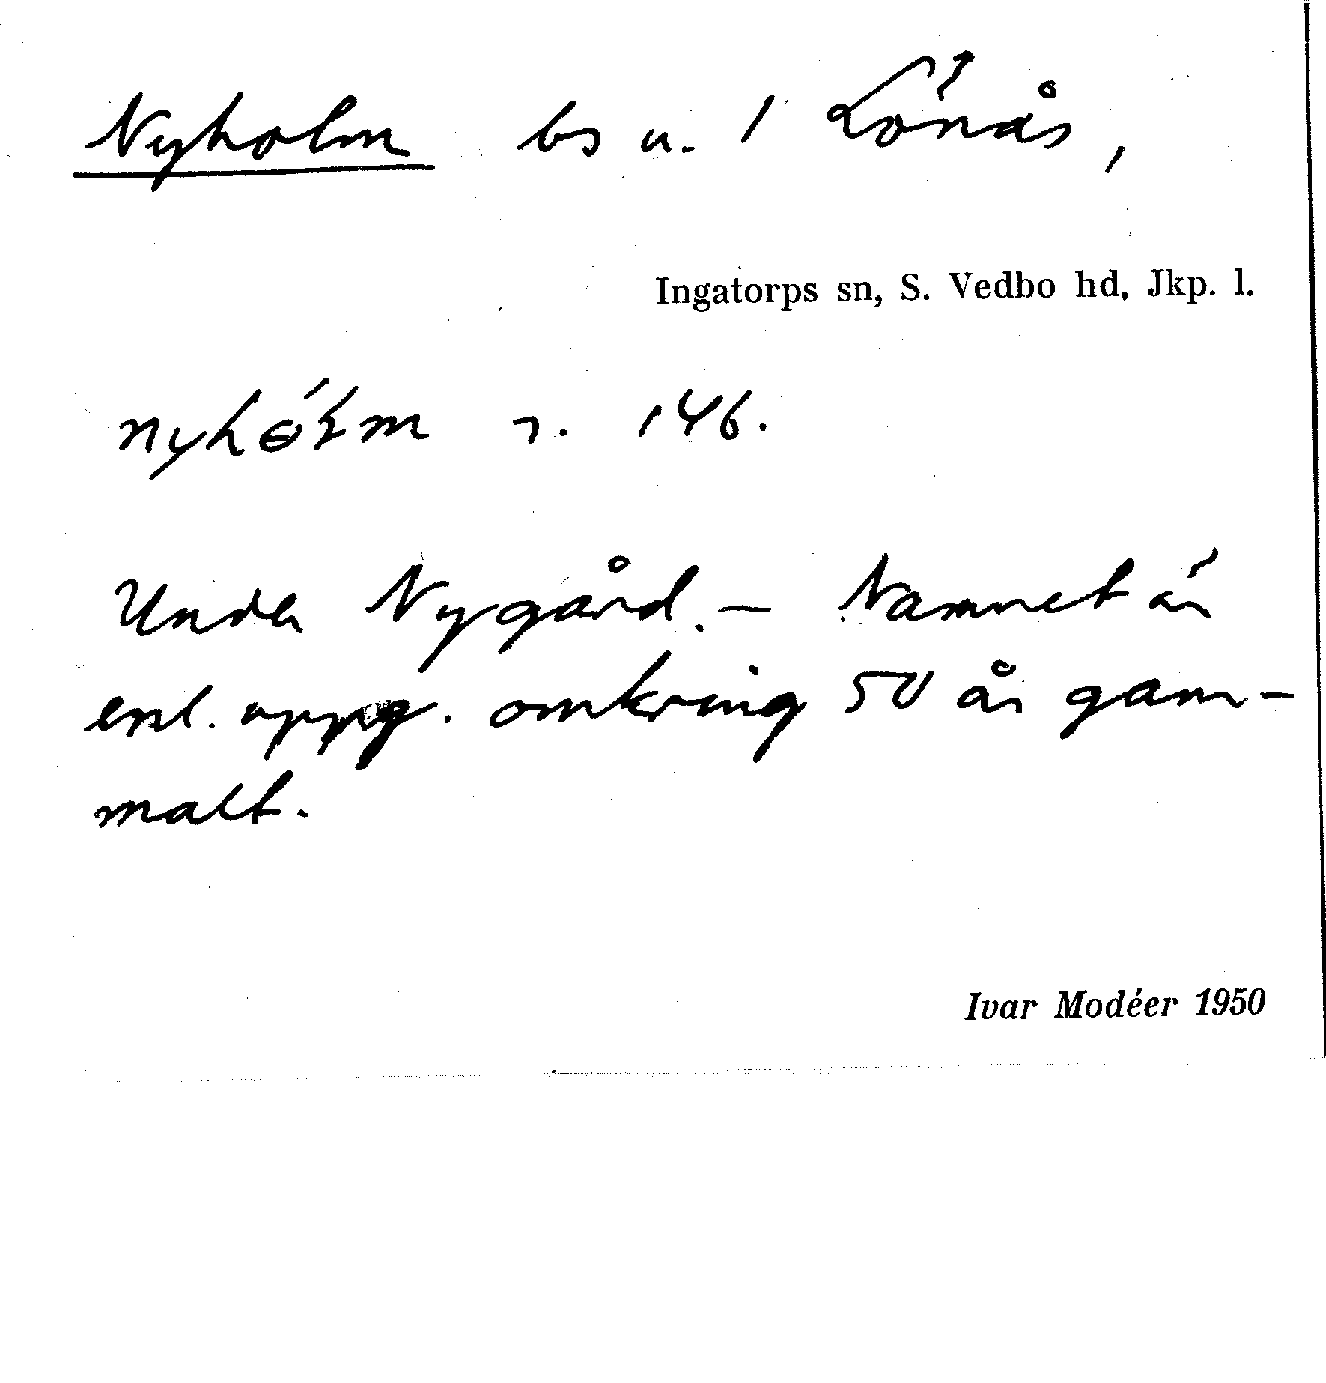 Nyholm bs u. 1 Lönås,
Ingatorps sn, S. Vedbo hd, Jkp. l.
nyhɵ́łm r. 146.
Under Nygård. – Namnet är
enl. uppg. omkring 50 år gam-
malt.
Ivar Modéer 1950